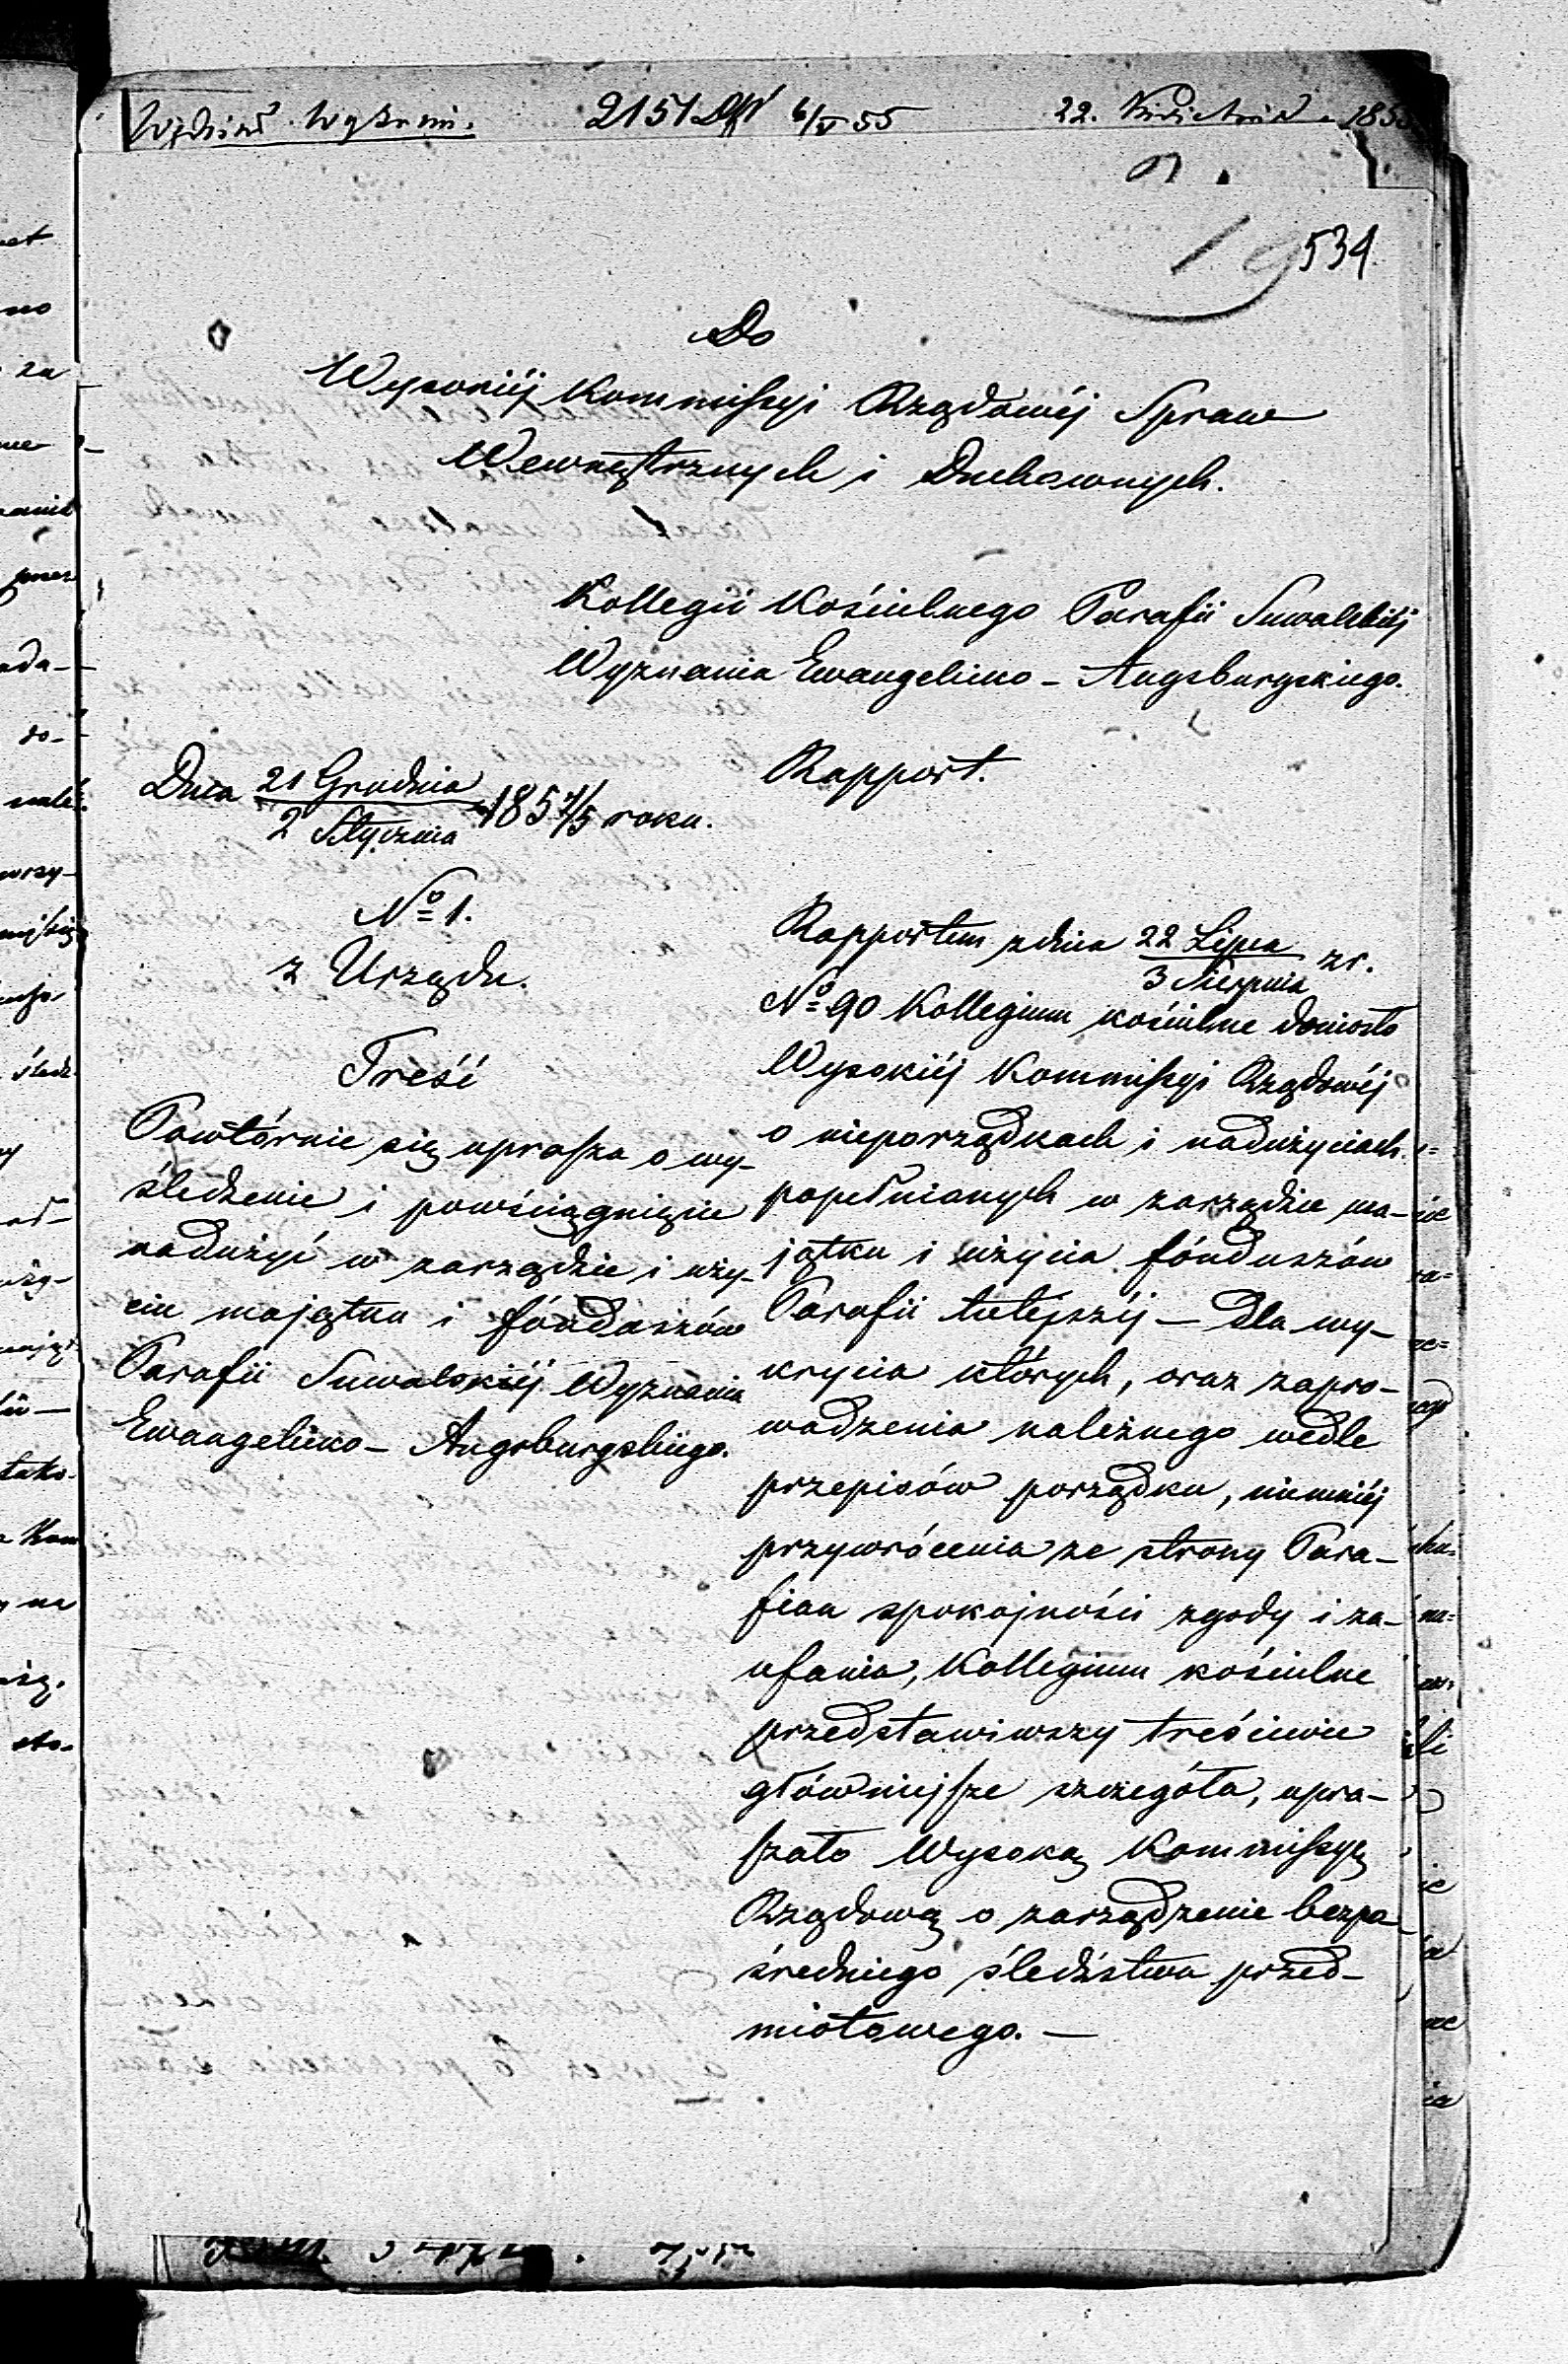 Wydział Wyznań.
2151 6/V 55
22. Kwietnia 185
534.
Do
Wysokiéj Kommissyi Rządowéj Spraw
Wewnętrznych i Duchownych.
Kollegii Kościelnego Parafii Suwalskiéj
Wyznania Ewangelicko-Augsburgskiego.
Rapport.
Dnia 21 Grudnia / 2 Stycznia 1854/5 roku.
№ 1.
z Urzędu.
Treść
Powtórnie się uprasza o wy-
śledzenie i powściągnięcie
nadużyć w zarządzie i uży-
ciu majątku i fónduszów
Parafii Suwalskiéj Wyznania
Ewangelicko-Augsburgskiego.
Rapportem z dnia 22 Lipca / 3 Sierpnia z r.
№ 90 Kollegium kościelne doniosło
Wysokiéj Kommissyi Rządowéj
o nieporządkach i nadużyciach
popełnianych w zarządzie ma-
jątku i użycia fónduszów
Parafii tutéjszéj – dla wy-
krycia których, oraz zapro-
wadzenia należnego wedle
przepisów porządku, niemniéj
przywrócenia ze strony Para-
fian spokojności zgody i za-
ufania, Kollegium kościelne
przedstawiwszy treściwie
główniejsze szczegóła, upra-
szało Wysoką Kommissyę
Rządową o zarządzenie bezpo-
średniego śledztwa przed-
miotowego. –